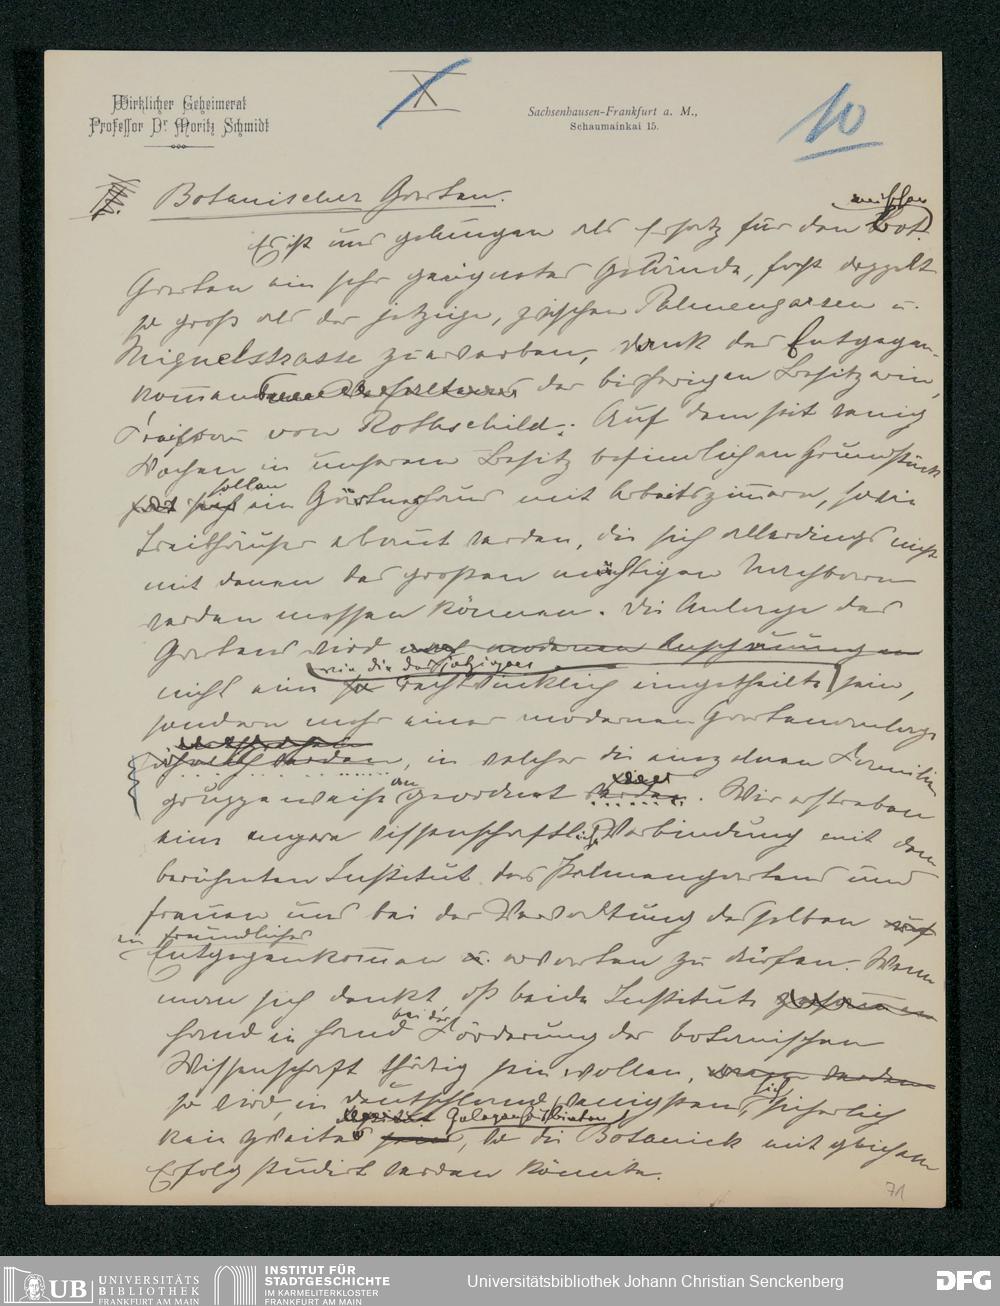 Wirklicher Geheimerat
Professor Dr. Moritz Schmidt
X
Sachsenhausen-Frankfurt a. M.,
Schaumainkai 15.
10
Botanischer Garten.
Es ist uns gelungen als Ersatz für den bot.
Garten ein sehr geeignetes Gelände, fast doppelt
so groß als der jetzige, zwischen Palmengarten u.
Miquelstrasse zu erwerben, dank des Entgegen-
kommens der bisherigen Besitzerin,
Freifrau von Rothschild. Auf dem seit wenig
Wochen in unserem Besitz befindlichen Grundstück
sollen
ein Gärtnerhaus mit Arbeitszimmern, sowie
Treibhäuser erbaut werden, die sich allerdings nicht
mit denen des großen mächtigen Nachbarn
werden messen können. Die Anlage des
Gartens wird nach modernen Anschauungen
wie die des jetzigen
nicht eine so rechtwinklich eingetheilte sein,
sondern mehr einer modernen Gartenanlage
ähnlich werden, in welcher die einzelnen Familien
gruppenweise angeordnet werden. Wir erstreben
eine engere wissenschaftliche Verbindung mit dem
berühmten Institut des Palmengartens und
freuen uns bei der Verwaltung desselben auf
freundliches
Entgegenkommen u. erwarten zu dürfen. Wenn
man sich denkt, daß beide Institute zusammen
bei der
Hand in Hand Förderung der botanischen
Wissenschaft thätig sein wollen, wenn werden
so wird, in Deutschland wenigstens, sich sicherlich
Gelegenheit bieten
kein zweites sein, wo die Botanick mit gleichem
Erfolg studirt werden könnte.
71
UB UNIVERSITÄTS
BIBLIOTHEK
FRANKFURT AM MAIN
INSTITUT FÜR
STADTGESCHICHTE
IM KARMELITERKLOSTER
FRANKFURT AM MAIN
Universitätsbibliothek Johann Christian Senckenberg
DFG